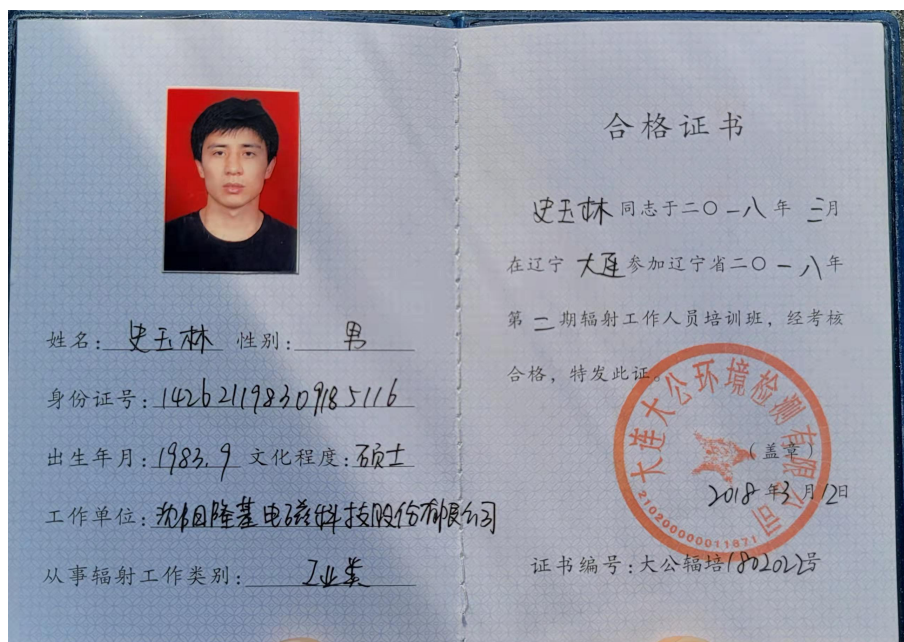 姓名：史玉林 性别：男
身份证号：142621198309185116
出生年月：1983.9 文化程度：硕士
工作单位：沈阳隆基电磁科技股份有限公司
从事辐射工作类别：工业类
合格证书
史玉林同志于二〇一八年三月
在辽宁大连参加辽宁省二〇一八年
第二期辐射工作人员培训班，经考核
合格，特发此证。
大连大公环境检测有限公司
210200000011871
（盖章）
2018年3月12日
证书编号：大公辐培1802022号